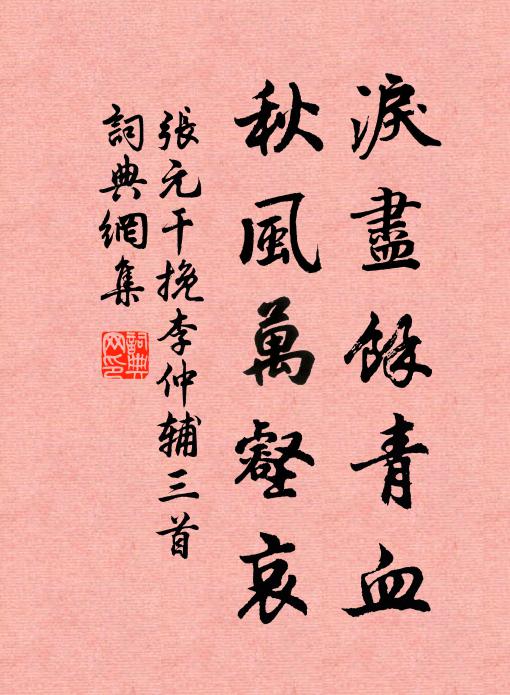 淚盡餘青血
秋風萬壑哀
張元干挽李仲辅三首
詞典網集
詞典网印